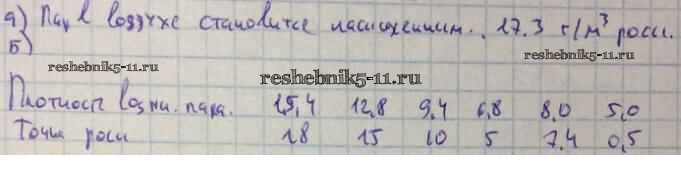 а) Пар в воздухе становится насыщенным. 17.3 г/м³ росы.
б)
reshebnik5-11.ru reshebnik5-11.ru
reshebnik5-11.ru
Плотность возд. пара. 15,4 12,8 9,4 6,8 8,0 5,0
Точка росы 18 15 10 5 7,4 0,5